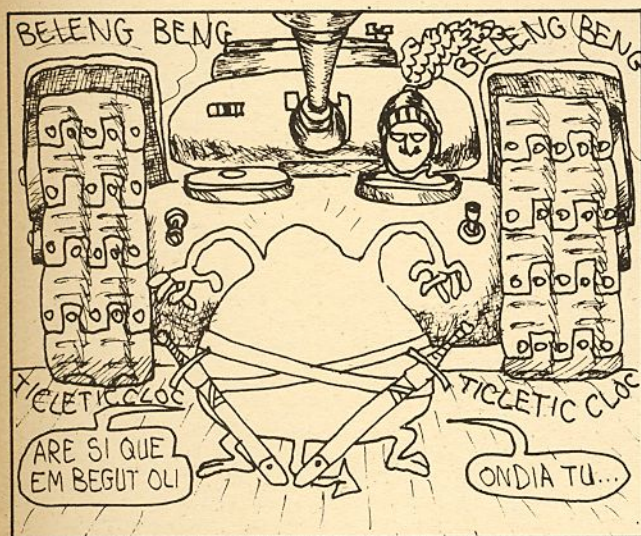 BELENG BENG
BELENG BENG
TICLETIC CLOC
TICLETIC CLOC
ARE SI QUE
EM BEGUT OLI
ONDIA TU...